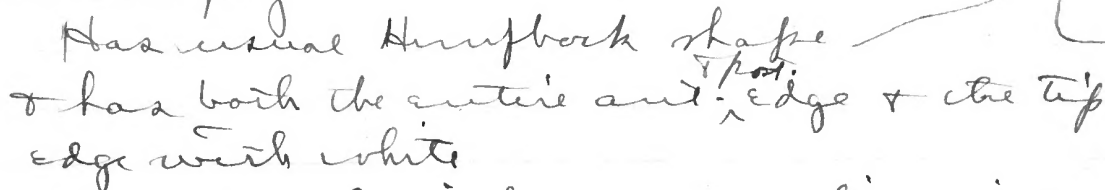 Has usual Humpback shape
& has both the entire ant. & post. edge & the tip
edge with white